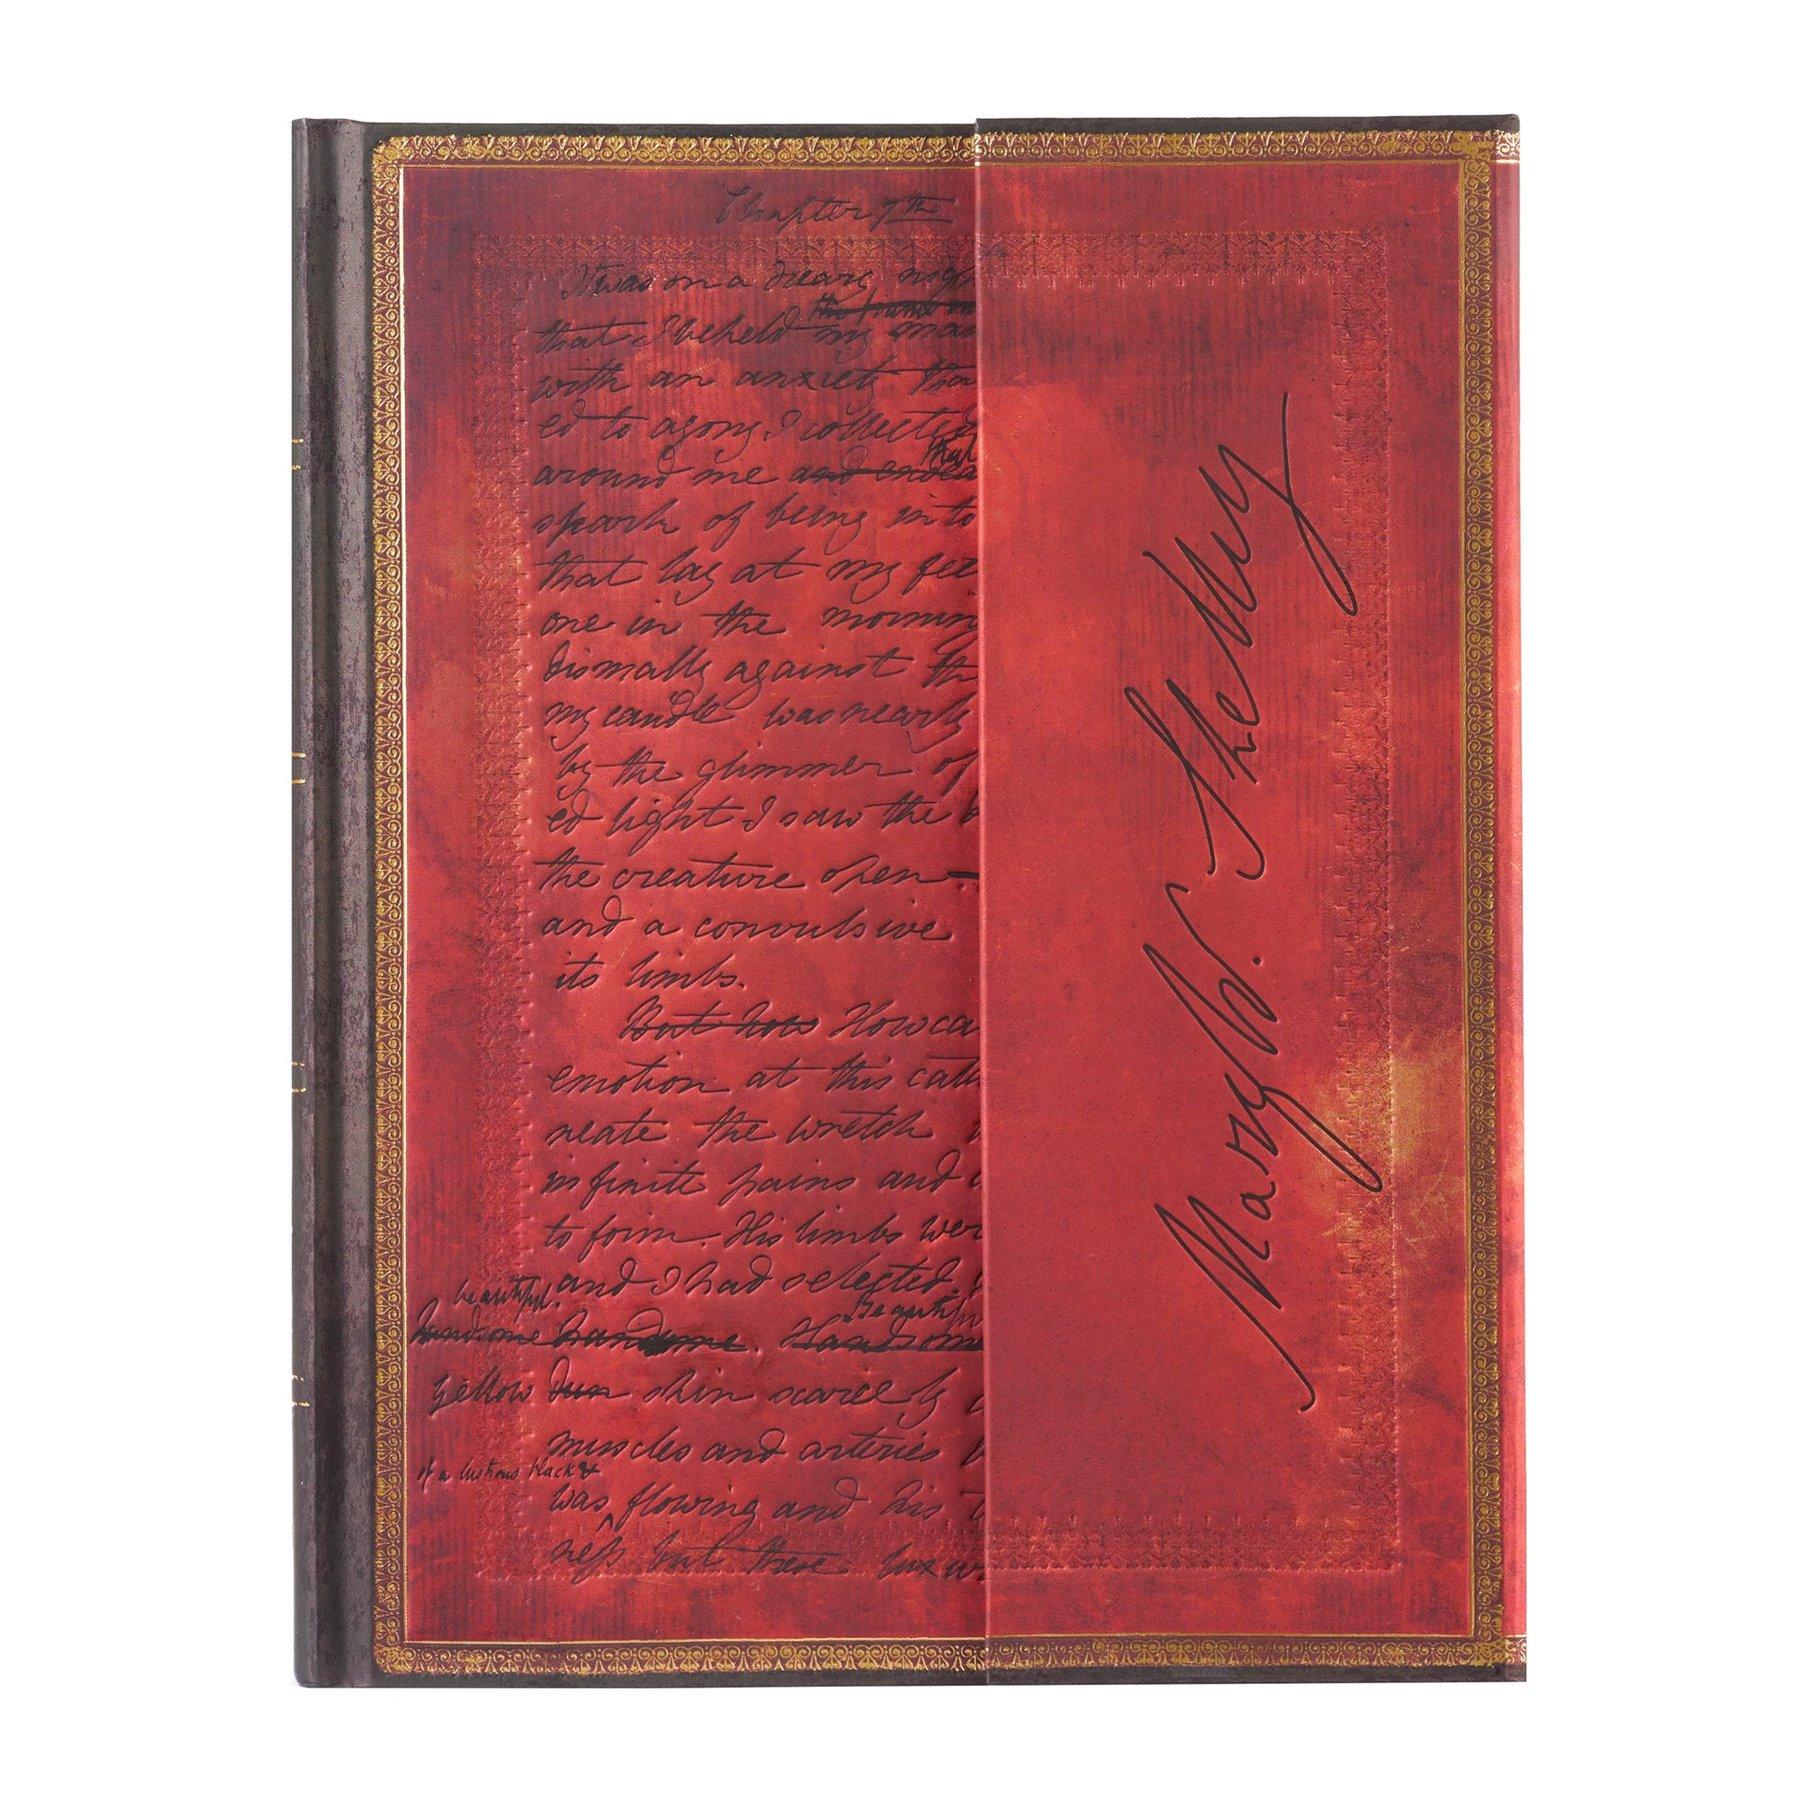 Chapter 7th
It was on a dreary nigh
the frame on
that I beheld my man
with an anxiety tha
ed to agony I collected
that
around me and endea
spark of being into
that lay at my fee
one in the morning
dismally against th
my candle was nearly
by the glimmer of
ed light I saw the
the creature open
and a convulsive
its limbs.
But how How ca
emotion at this cata
neate the wretch
infinite pains and
to form. His limbs wer
and I had selected
beautiful. Beautiful
handsome handsome. Handsome
yellow dun skin scarcely
muscles and arteries
of a lustrous black &
was flowing and his
ness but these lux
Mary W. Shelley